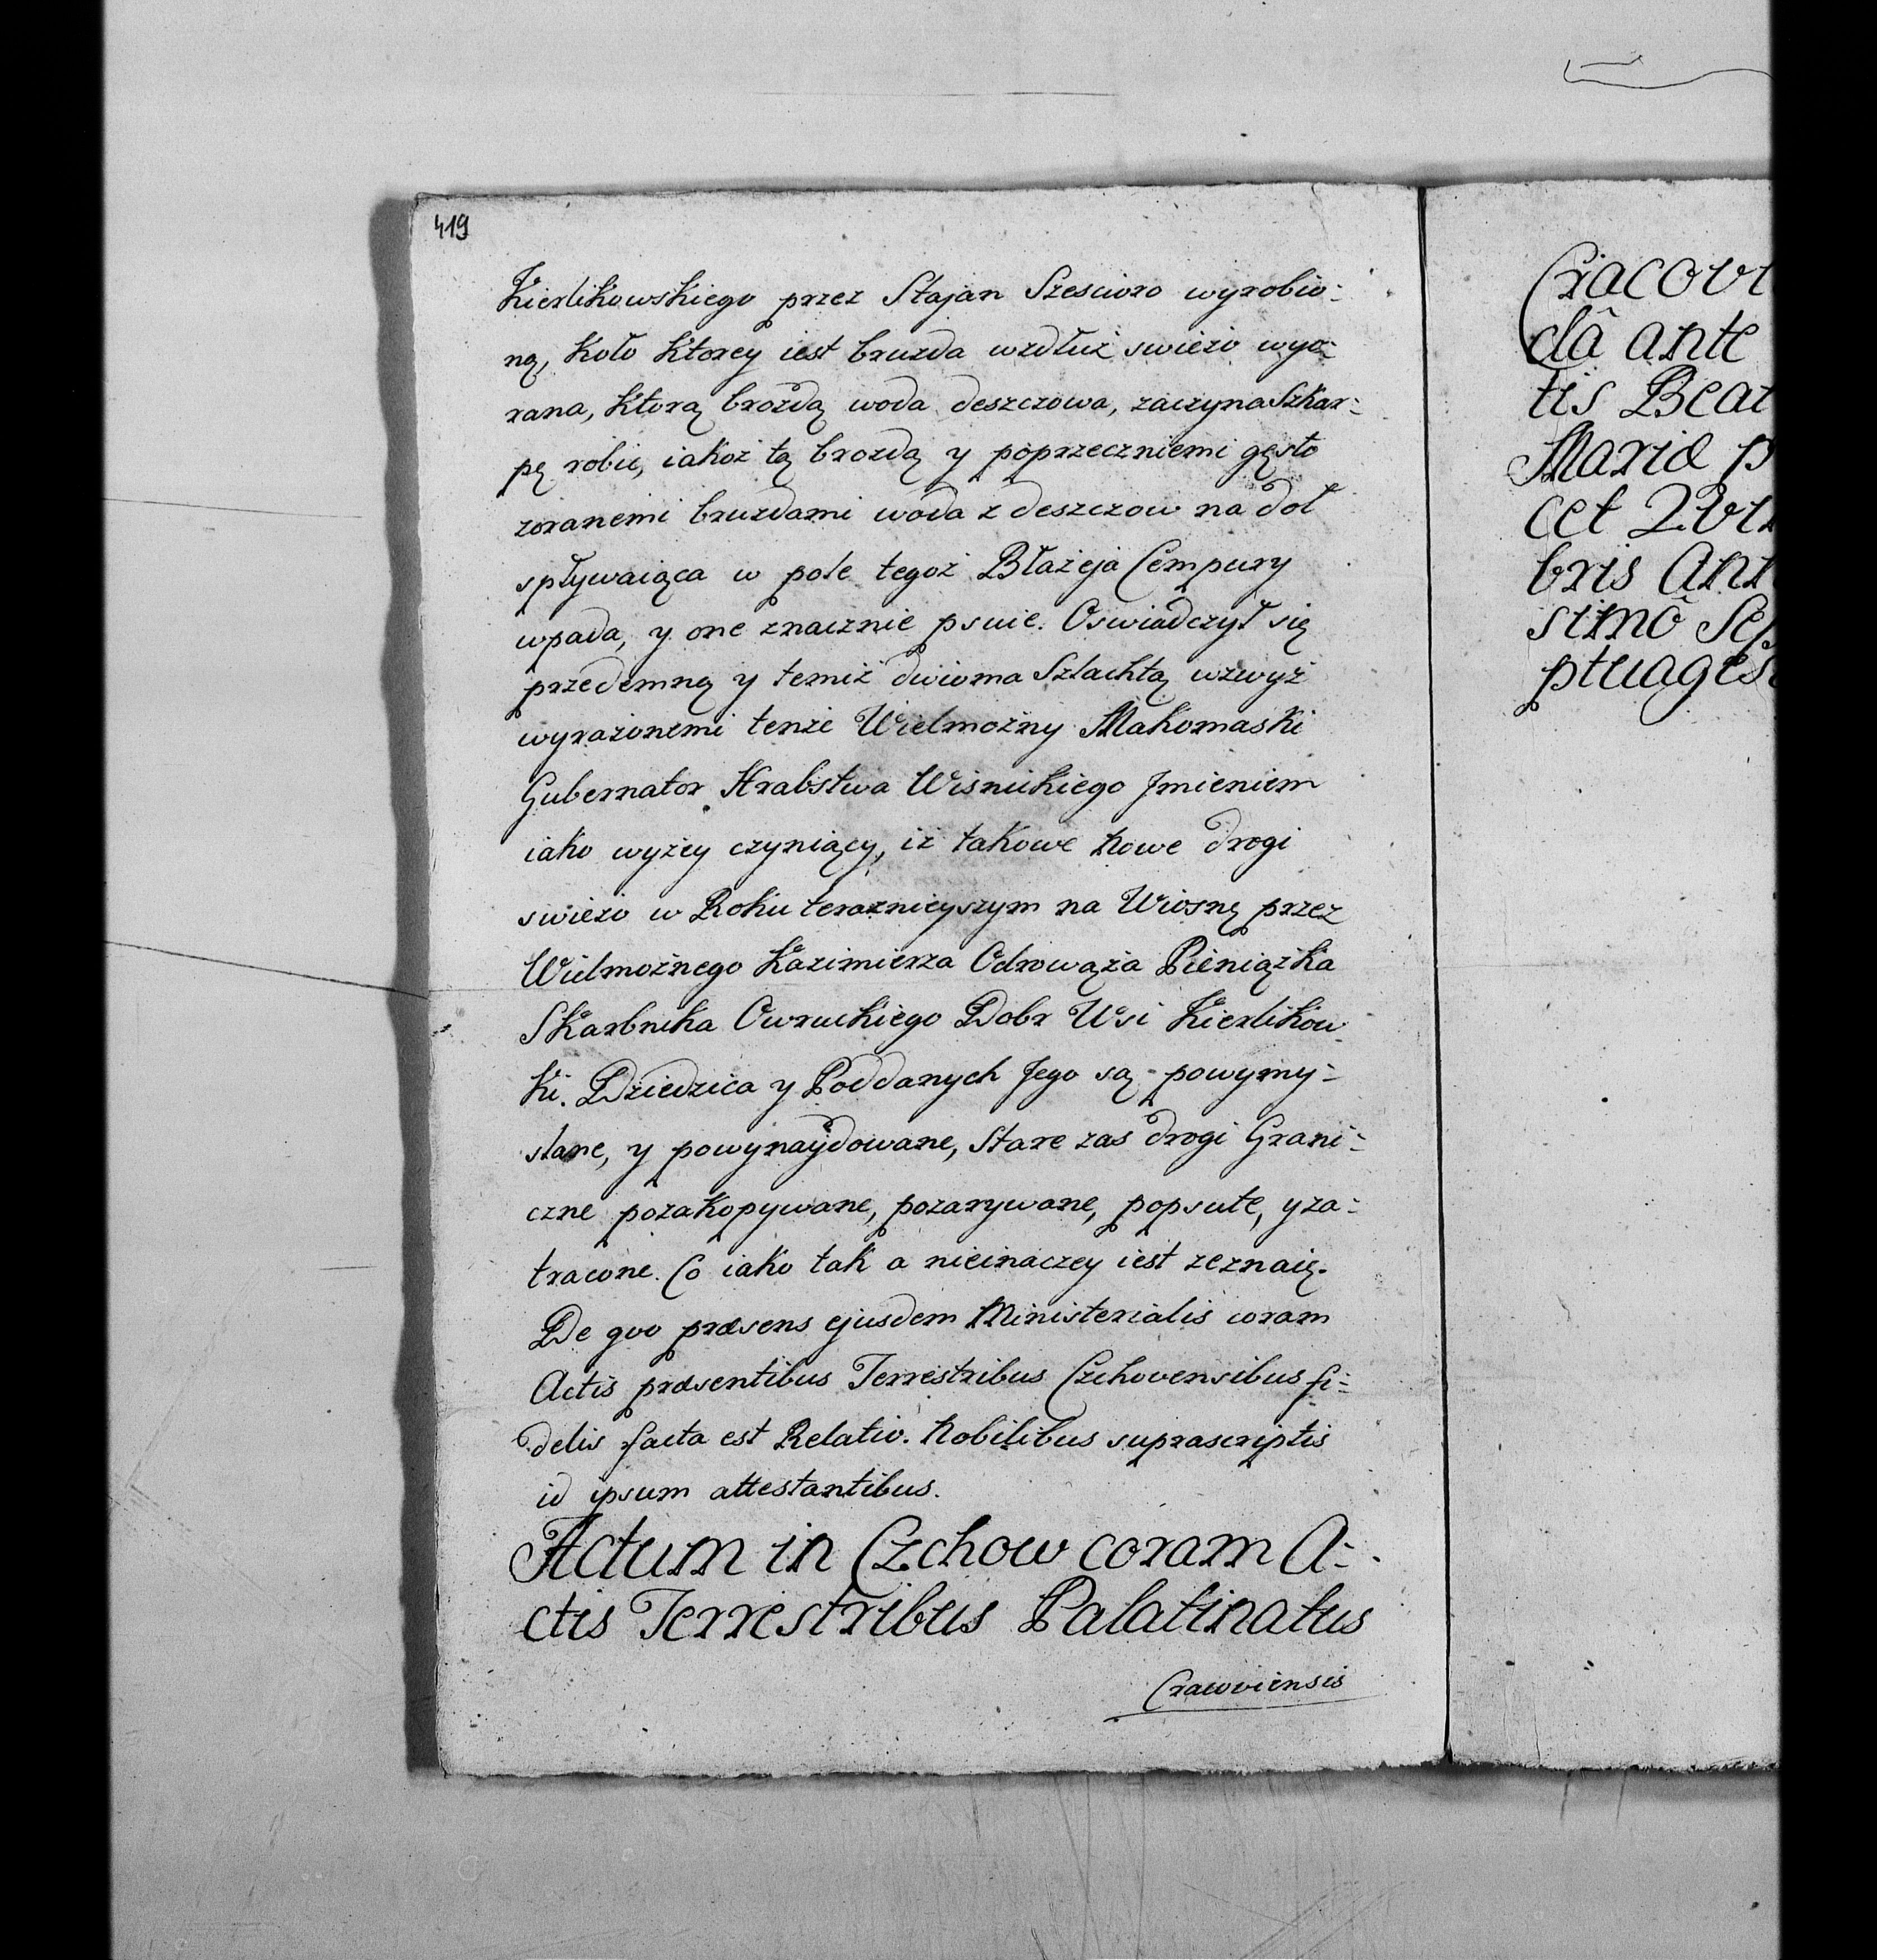 419
Kierlikowskiego przez Stajan Szescioro wyrobio=
ną, koło ktorey iest bruzda wzdłuż swieżo wyo=
rana, ktorą brozdą woda deszczowa, zaczyna Szkar=
pę robić, iakoż tą brozdą y poprzeczniemi gęsto
zoranemi bruzdami woda z deszczow na doł
spływaiąca w pole tegoż Błażeja Cempury
wpada, y one znacznie psuie. Oswiadczył się
przedemną y temiż dwioma Szlachtą wzwyż
wyrażonemi tenże Wielmożny Makomaski
Gubernator Hrabstwa Wisnickiego Jmieniem
iako wyżey czyniący, iż takowe nowe drogi
swieżo w Roku teraznieyszym na Wiosnę przez
Wielmożnego Kazimierza Odrowąża Pieniążka
Skarbnika Owruckiego Dobr Wsi Kierlikow=
ki. Dziedzica y Poddanych Jego są powymy=
slane, y powynaydowane, Stare zas drogi Grani=
czne pozakopywane, pozarywane, popsute, y za=
tracone. Co iako tak a nieinaczey iest zeznaię.
De quo præsens ejusdem Ministerialis coram
Actis præsentibus Terrestribus Czchoviensibus fi=
delis facta est Relatio. Nobilibus suprascriptis
id ipsum attestantibus.
Actum in Czchow coram A=
ctis Terrestribus Palatinatus
Cracoviensis
Cracovi
dâ ante
tis Beat
Mariæ p
cet
bris Ann
simô Sep
ptuages